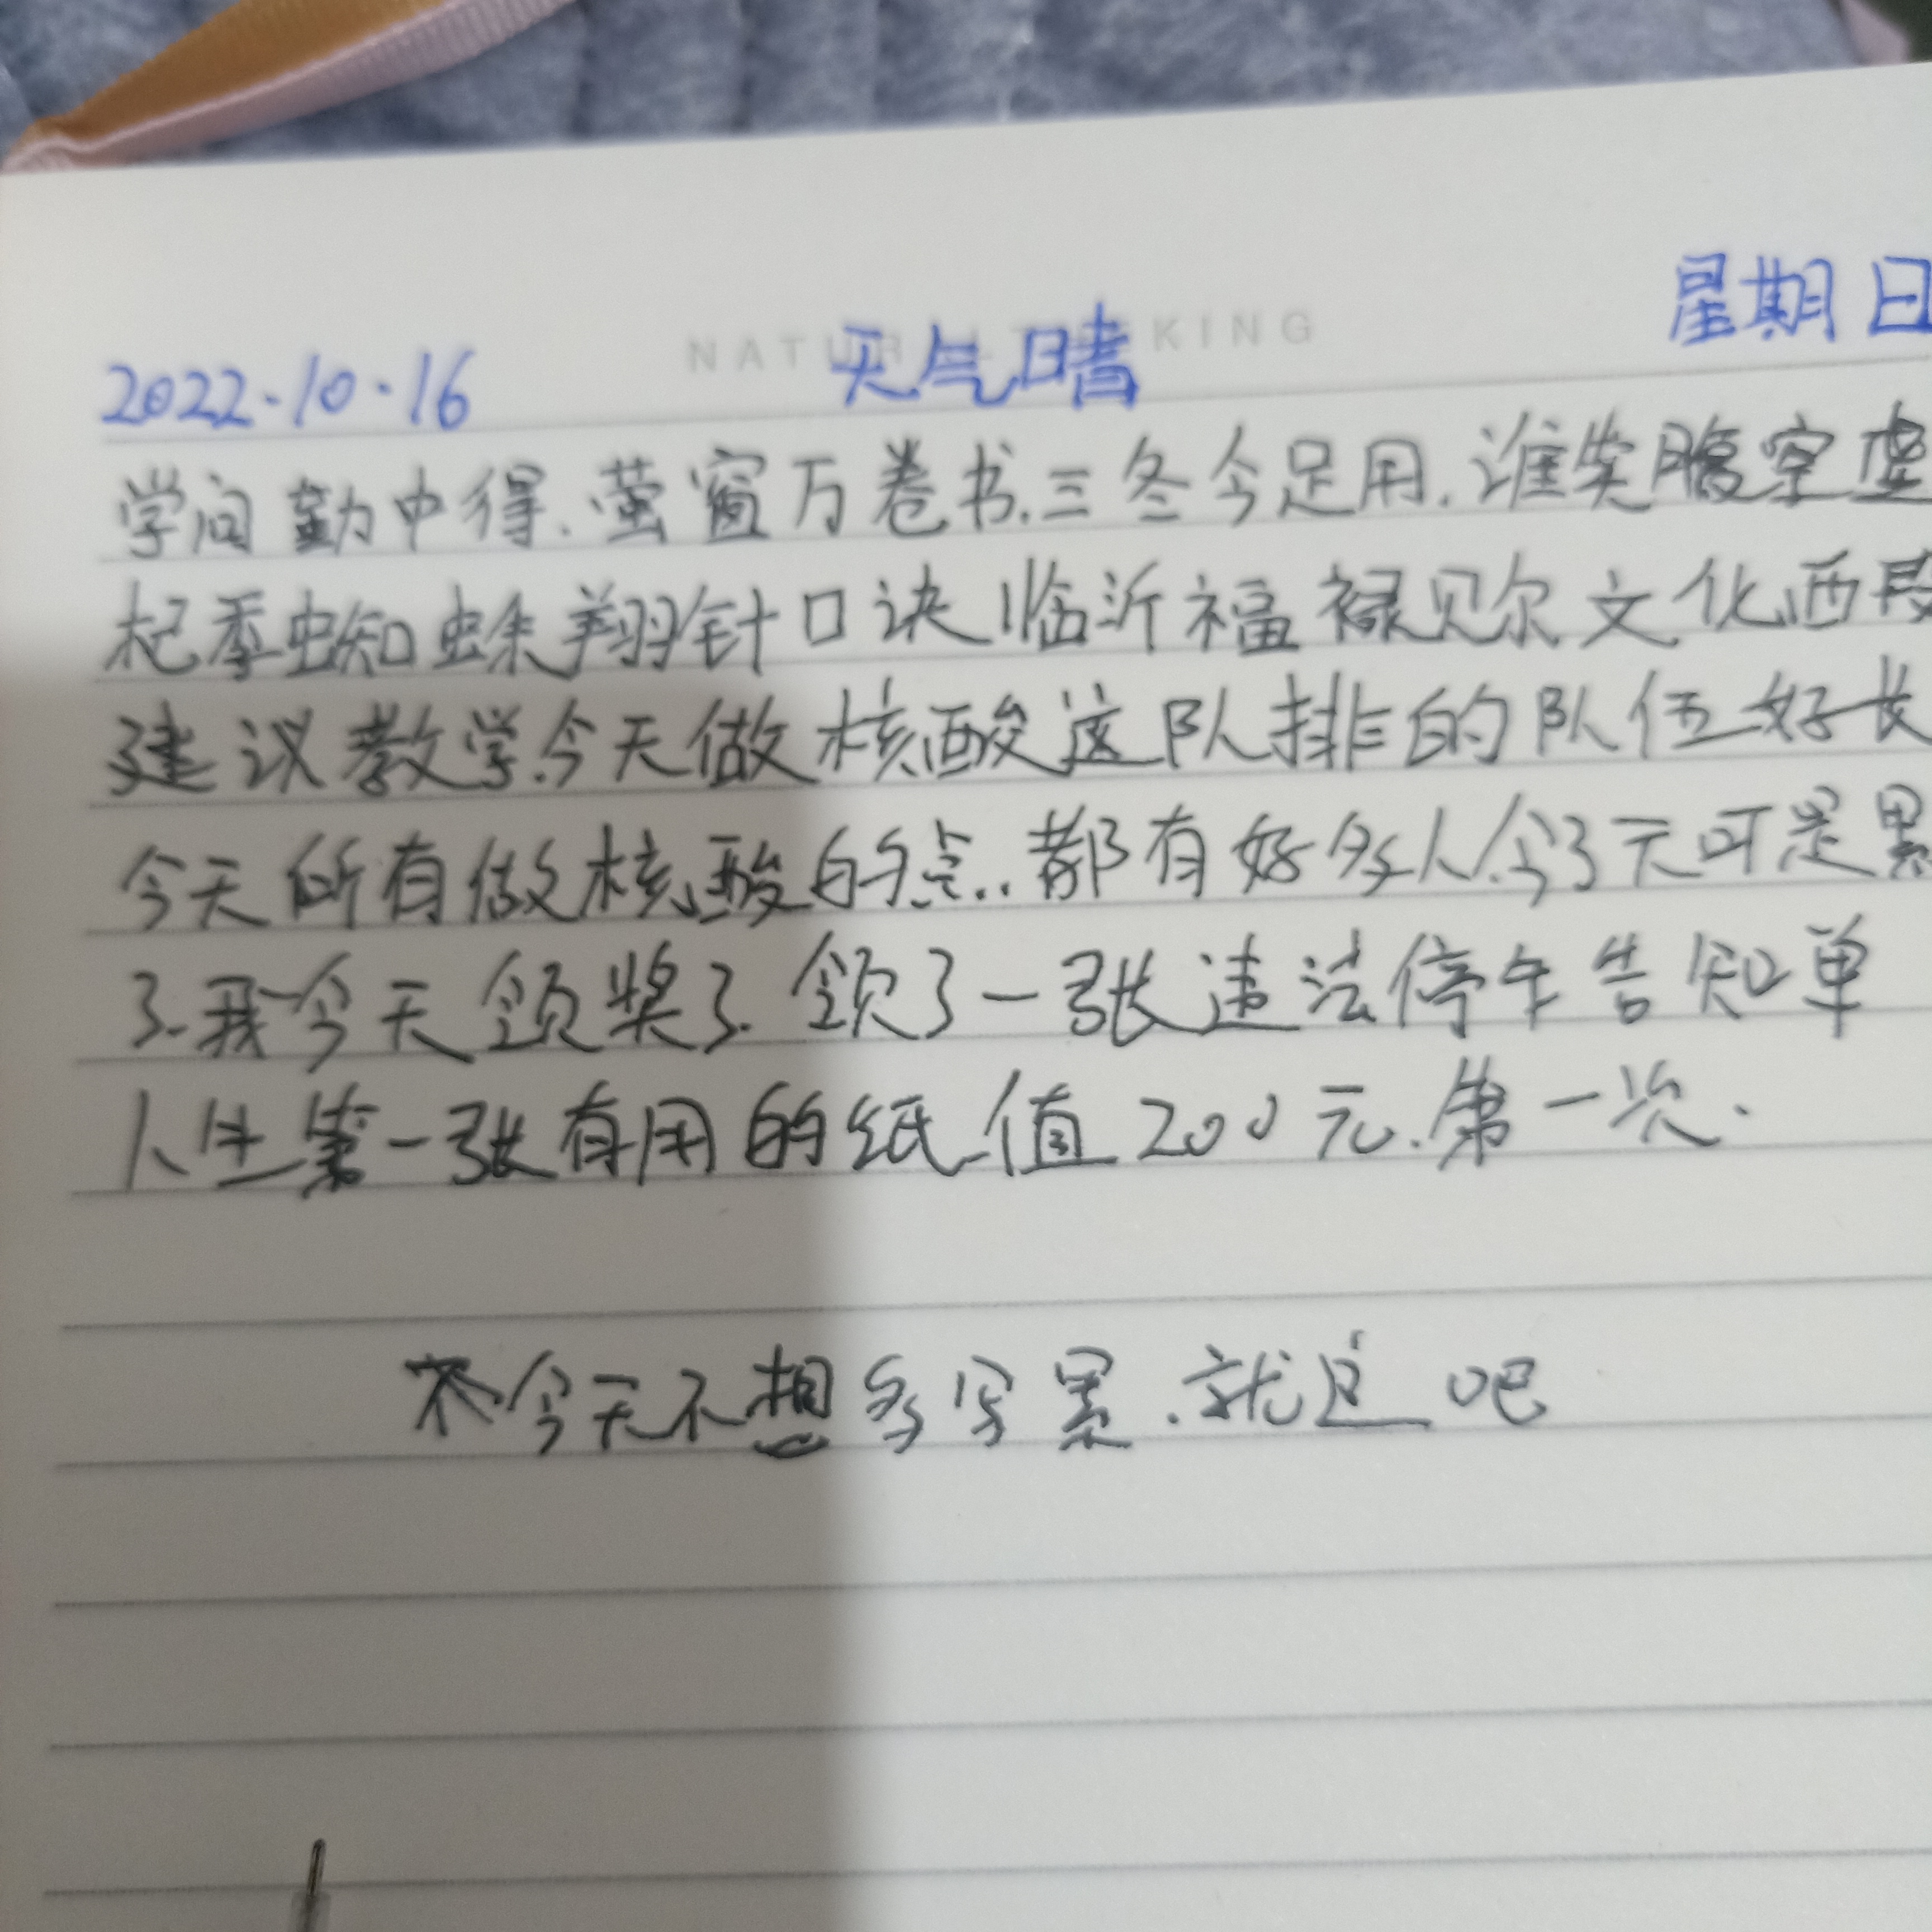 2022.10.16 天气晴 星期日
学问勤中得.萤窗万卷书.三冬今足用.谁笑腹空虚
杞季蜘蛛翔针口诀临沂福禄贝尔文化西段
建议教学.今天做核酸这队排的队伍好长
今天所有做核酸的点..都有好多人.今了天可是累
了.我今天领奖了.领了一张违法停车告知单
人生第一张有用的纸.值200元.第一次.
今天不想多写累.就这吧